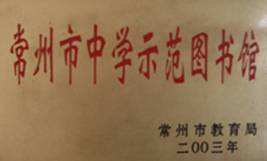 常州市中学示范图书馆
常州市教育局
二〇〇三年